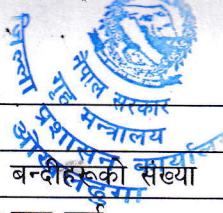 नेपाल सरकार
गृह मन्त्रालय
जिल्ला प्रशासन कार्यालय
ओखलढुंगा
बन्दीहरूको संख्या